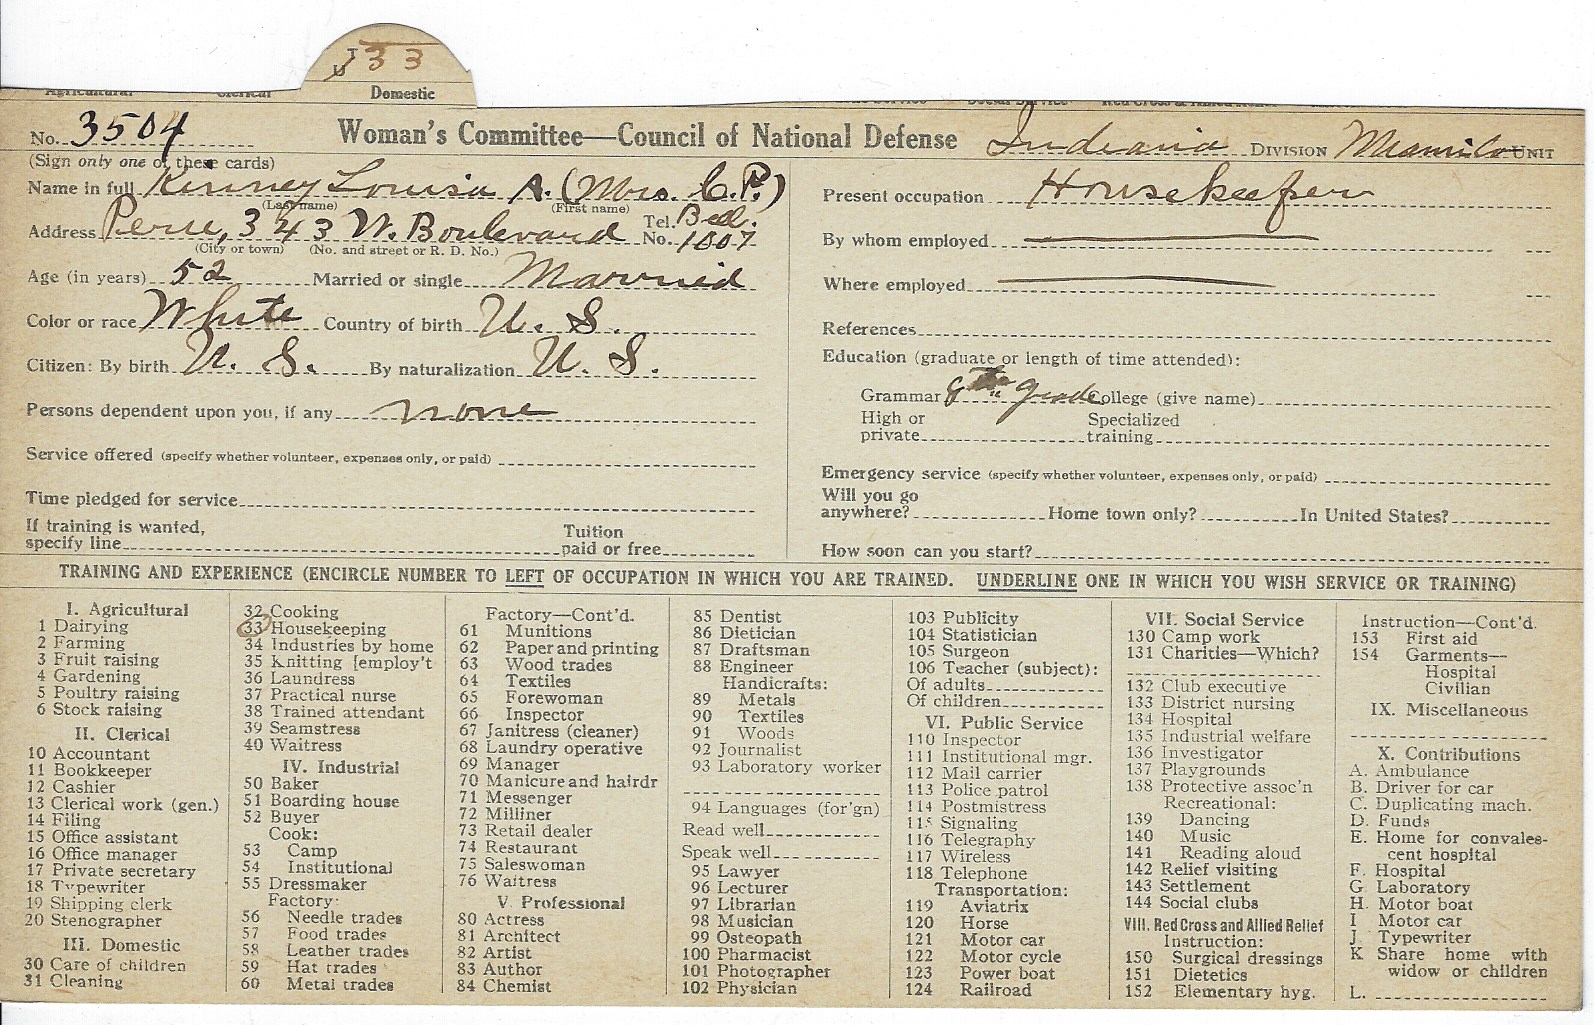 33
Domestic
No. 3504 Woman's Committee—Council of National Defense Indiana DIVISION Miami Co UNIT
(Sign only one of these cards)
Name in full Kinney Louisa A. (Mrs. C. P.)
(Last name) (First name)
Address Peru, 343 W. Boulevard Tel. No. Bell. 1007
(City or town) (No. and street or R. D. No.)
Age (in years) 52 Married or single Married
Color or race White Country of birth U. S.
Citizen: By birth U. S. By naturalization U. S.
Persons dependent upon you, if any none
Service offered (specify whether volunteer, expenses only, or paid)
Time pledged for service
If training is wanted,
specify line
Tuition
paid or free
Present occupation Housekeeper
By whom employed
Where employed
References
Education (graduate or length of time attended):
Grammar 8th grade College (give name)
High or
private
Specialized
training
Emergency service (specify whether volunteer, expenses only, or paid)
Will you go
anywhere? Home town only? In United States?
How soon can you start?
TRAINING AND EXPERIENCE (ENCIRCLE NUMBER TO LEFT OF OCCUPATION IN WHICH YOU ARE TRAINED. UNDERLINE ONE IN WHICH YOU WISH SERVICE OR TRAINING)
I. Agricultural
1 Dairying
2 Farming
3 Fruit raising
4 Gardening
5 Poultry raising
6 Stock raising
II. Clerical
10 Accountant
11 Bookkeeper
12 Cashier
13 Clerical work (gen.)
14 Filing
15 Office assistant
16 Office manager
17 Private secretary
18 Typewriter
19 Shipping clerk
20 Stenographer
III. Domestic
30 Care of children
31 Cleaning
32 Cooking
33 Housekeeping
34 Industries by home
35 Knitting [employ't
36 Laundress
37 Practical nurse
38 Trained attendant
39 Seamstress
40 Waitress
IV. Industrial
50 Baker
51 Boarding house
52 Buyer
Cook:
53 Camp
54 Institutional
55 Dressmaker
Factory:
56 Needle trades
57 Food trades
58 Leather trades
59 Hat trades
60 Metal trades
Factory—Cont'd.
61 Munitions
62 Paper and printing
63 Wood trades
64 Textiles
65 Forewoman
66 Inspector
67 Janitress (cleaner)
68 Laundry operative
69 Manager
70 Manicure and hairdr
71 Messenger
72 Milliner
73 Retail dealer
74 Restaurant
75 Saleswoman
76 Waitress
V. Professional
80 Actress
81 Architect
82 Artist
83 Author
84 Chemist
85 Dentist
86 Dietician
87 Draftsman
88 Engineer
Handicrafts:
89 Metals
90 Textiles
91 Woods
92 Journalist
93 Laboratory worker
94 Languages (for'gn)
Read well
Speak well
95 Lawyer
96 Lecturer
97 Librarian
98 Musician
99 Osteopath
100 Pharmacist
101 Photographer
102 Physician
103 Publicity
104 Statistician
105 Surgeon
106 Teacher (subject):
Of adults
Of children
VI. Public Service
110 Inspector
111 Institutional mgr.
112 Mail carrier
113 Police patrol
114 Postmistress
115 Signaling
116 Telegraphy
117 Wireless
118 Telephone
Transportation:
119 Aviatrix
120 Horse
121 Motor car
122 Motor cycle
123 Power boat
124 Railroad
VII. Social Service
130 Camp work
131 Charities—Which?
132 Club executive
133 District nursing
134 Hospital
135 Industrial welfare
136 Investigator
137 Playgrounds
138 Protective assoc'n
Recreational:
139 Dancing
140 Music
141 Reading aloud
142 Relief visiting
143 Settlement
144 Social clubs
VIII. Red Cross and Allied Relief
Instruction:
150 Surgical dressings
151 Dietetics
152 Elementary hyg.
Instruction—Cont'd.
153 First aid
154 Garments—
Hospital
Civilian
IX. Miscellaneous
X. Contributions
A. Ambulance
B. Driver for car
C. Duplicating mach.
D. Funds
E. Home for convales-
cent hospital
F. Hospital
G Laboratory
H. Motor boat
I Motor car
J. Typewriter
K Share home with
widow or children
L.